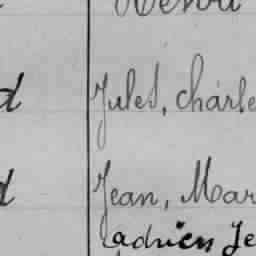 d Jules, Charle
d Jean, Mar
adrien Je